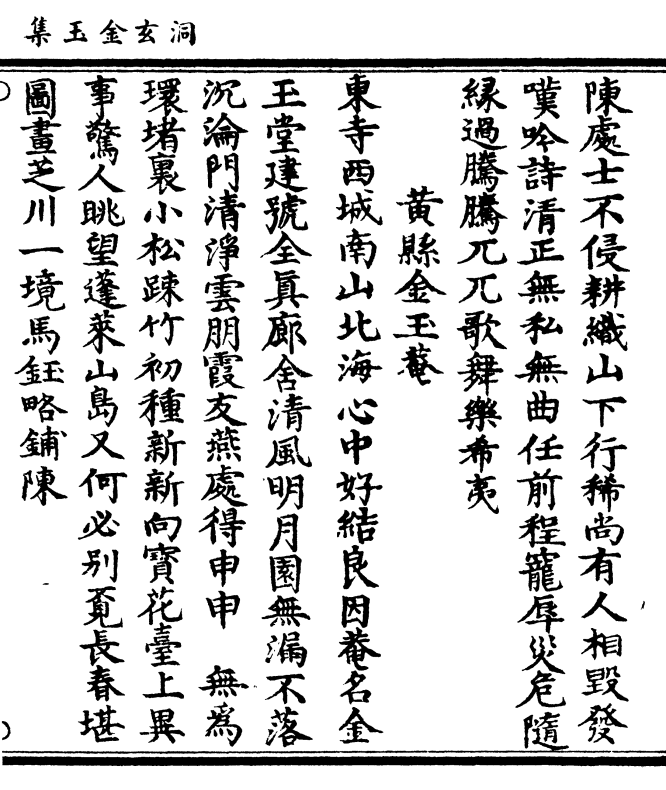 洞玄金玉集
陳處士不侵耕織山下行稀尚有人相毀發
嘆吟詩清正無私無曲任前程寵辱災危隨
緣過騰騰兀兀歌舞樂希夷
黃縣金玉菴
東寺西城南山北海心中好結良因菴名金
玉堂建號全眞廊舍清風明月園無漏不落
沉淪門清淨雲朋霞友燕處得申申 無爲
環堵裏小松踈竹初種新新向寶花臺上異
事驚人眺望蓬萊山島又何必別覓長春堪
圖畫芝川一境馬鈺略鋪陳